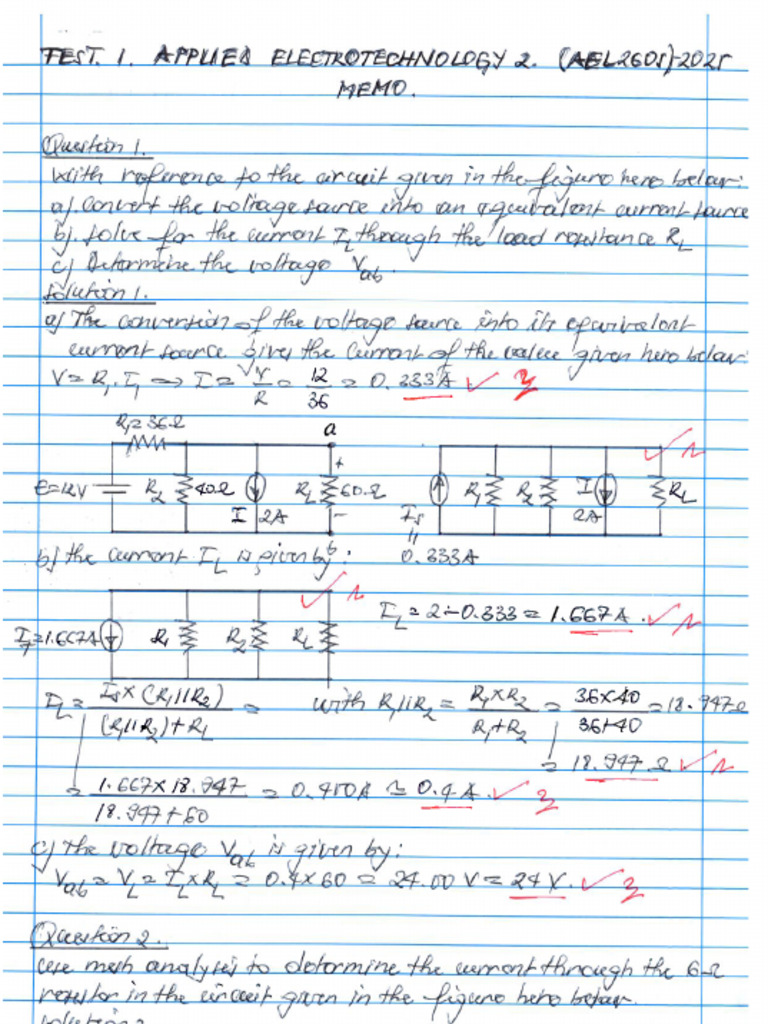 TEST. 1. APPLIED ELECTROTECHNOLOGY 2. (AEL2605)-2025
MEMO.
Question 1.
With reference to the circuit given in the figure here below:
a). Convert the voltage source into an equivalent current source
b). Solve for the current I_L through the load resistance R_L
c). Determine the voltage V_ab.
Solution 1.
a) The conversion of the voltage source into its equivalent
current source gives the current of the value given here below:
V = R₁.I₁ ⇒ I = V/R = 12/36 = 0.333A ✓ 3
R₁=36Ω a
E=12V R₂ 40Ω I 2A R_L 60Ω + - b
I_s = 0.333A R₁ R₂ I 2A R_L ✓ 1
b) the current I_L is given by:
I_T=1.667A R₁ R₂ R_L ✓ 1
I_L = 2-0.333 = 1.667A. ✓ 1
I_L = I_T × (R₁//R₂) / (R₁//R₂)+R_L = with R₁//R₂ = R₁×R₂ / R₁+R₂ = 36×40 / 36+40 = 18.947Ω
= 18.947 Ω ✓ 1
= 1.667×18.947 / 18.947+60 = 0.410A ≃ 0.4 A. ✓ 3
c) The voltage V_ab is given by:
V_ab = V_L = I_L×R_L = 0.4×60 = 24.00 V = 24 V. ✓ 3
Question 2.
Use mesh analysis to determine the current through the 6-Ω
resistor in the circuit given in the figure here below.
Solution 2